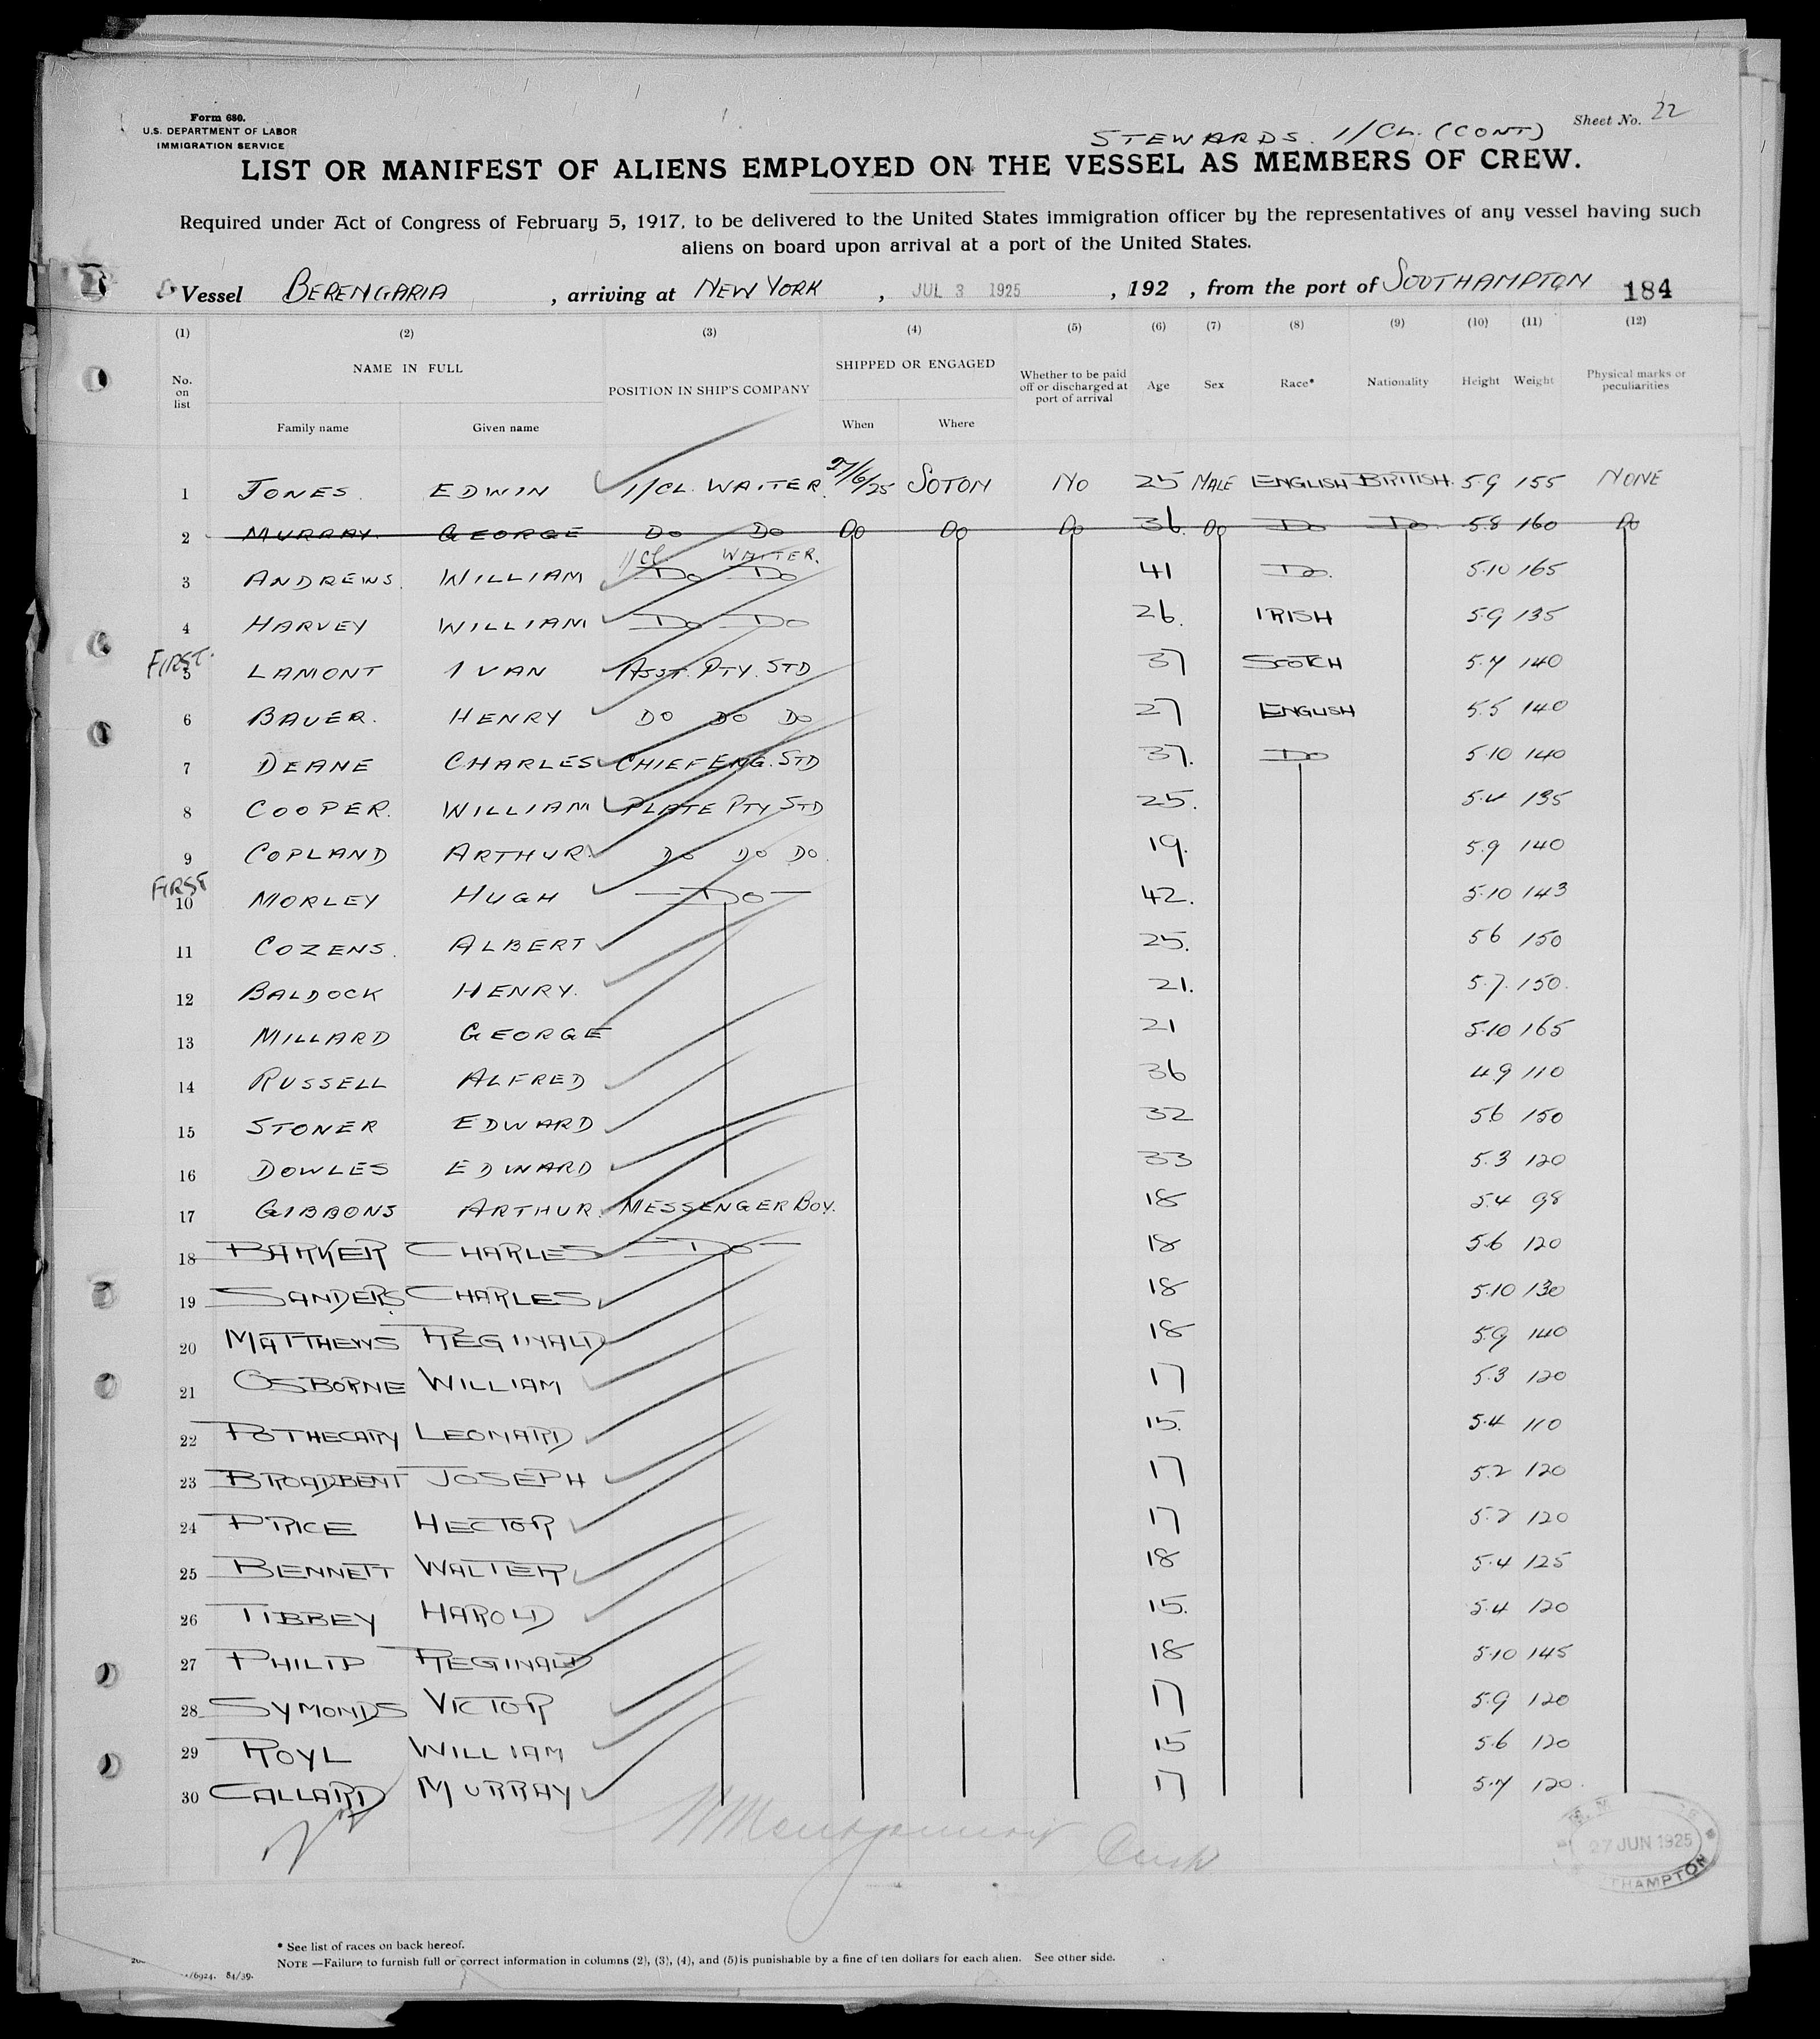 Form 680.
U.S. DEPARTMENT OF LABOR
IMMIGRATION SERVICE
Sheet No. 22
STEWARDS. 1/CL. (CONT)
LIST OR MANIFEST OF ALIENS EMPLOYED ON THE VESSEL AS MEMBERS OF CREW.
Required under Act of Congress of February 5, 1917, to be delivered to the United States immigration officer by the representatives of any vessel having such
aliens on board upon arrival at a port of the United States.
Vessel BERENGARIA, arriving at NEW YORK, JUL 3 1925, 192 , from the port of SOUTHAMPTON 184
(1) (2) (3) (4) (5) (6) (7) (8) (9) (10) (11) (12)
No. on list NAME IN FULL POSITION IN SHIP'S COMPANY SHIPPED OR ENGAGED Whether to be paid off or discharged at port of arrival Age Sex Race* Nationality Height Weight Physical marks or peculiarities
Family name Given name When Where
1 JONES. EDWIN 1/CL. WAITER. 27/6/25 SOTON NO 25 MALE ENGLISH BRITISH. 5.9 155 NONE
2 MURRAY. GEORGE DO DO DO DO DO 36. DO DO DO 5.8 160 DO
1/CL WAITER.
3 ANDREWS. WILLIAM DO DO 41 DO. 5.10 165
4 HARVEY WILLIAM DO DO 26. IRISH 5.9 135
FIRST.
5 LAMONT IVAN ASST. PTY. STD 37 SCOTCH 5.7 140
6 BAUER. HENRY DO DO DO 27 ENGLISH 5.5 140
7 DEANE CHARLES CHIEF ENG. STD 37. DO 5.10 140
8 COOPER. WILLIAM PLATE PTY STD 25. 5.4 135
9 COPLAND ARTHUR. DO DO DO. 19. 5.9 140
FIRST
10 MORLEY HUGH DO 42. 5.10 143
11 COZENS. ALBERT 25. 5.6 150
12 BALDOCK HENRY. 21. 5.7. 150.
13 MILLARD GEORGE 21 5.10 165
14 RUSSELL ALFRED 36 4.9 110
15 STONER EDWARD 32 5.6 150
16 DOWLES EDWARD 33 5.3 120
17 GIBBONS ARTHUR. MESSENGER BOY. 18 5.4 98
18 BARKER CHARLES DO 18 5.6 120
19 SANDERS CHARLES 18 5.10 130
20 MATTHEWS REGINALD 18 5.9 140
21 OSBORNE WILLIAM 17 5.3 120
22 POTHECARY LEONARD 15. 5.4 110
23 BROADBENT JOSEPH 17 5.2 120
24 PRICE HECTOR 17 5.2 120
25 BENNETT WALTER 18 5.4 125
26 TIBBEY HAROLD 15. 5.4 120
27 PHILIP REGINALD 18 5.10 145
28 SYMONDS VICTOR 17 5.9 120
29 ROYL WILLIAM 15 5.6 120
30 CALLARD MURRAY 17 5.7 120.
27 JUN 1925
THAMPTON
* See list of races on back hereof.
NOTE —Failure to furnish full or correct information in columns (2), (3), (4), and (5) is punishable by a fine of ten dollars for each alien. See other side.
/6924. 84/39.